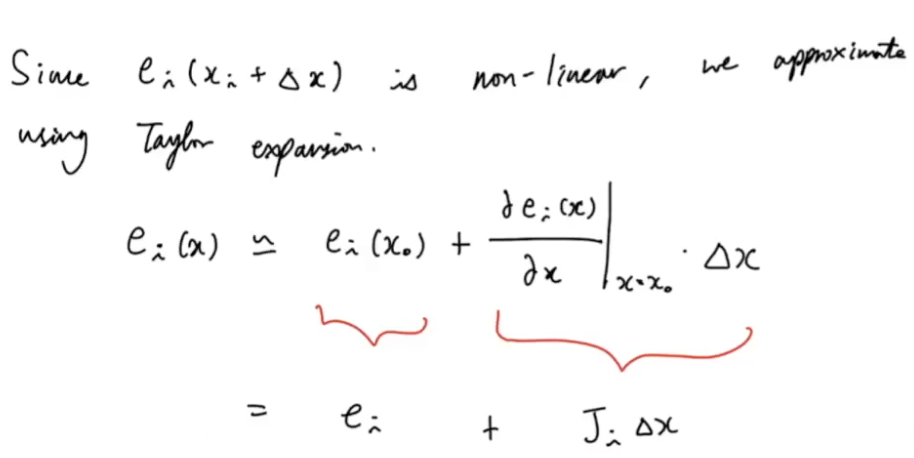 Since eᵢ(xᵢ + Δx) is non-linear, we approximate
using Taylor expansion.
eᵢ(x) ≃ eᵢ(x₀) + ∂eᵢ(x)/∂x |ₓ₌ₓ₀ · Δx
= eᵢ + Jᵢ Δx